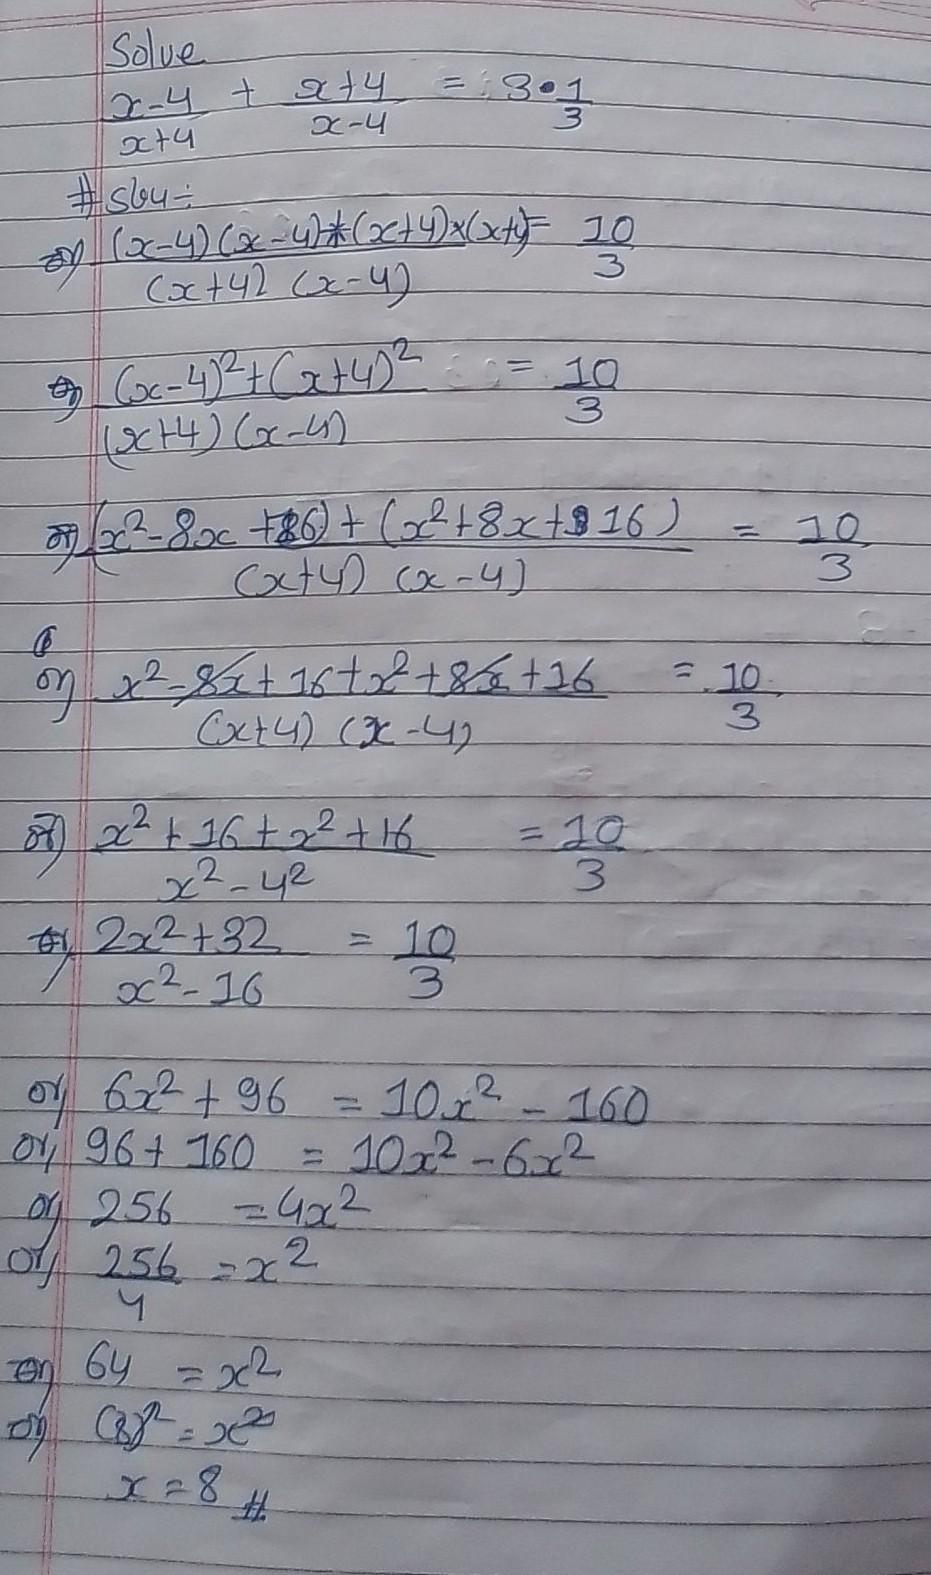 Solve
x-4/x+4 + x+4/x-4 = 3·1/3
# Soln÷
or, (x-4)(x-4)+(x+4)×(x+4)/(x+4)(x-4) = 10/3
or, (x-4)²+(x+4)²/(x+4)(x-4) = 10/3
or, (x²-8x+16)+(x²+8x+16)/(x+4)(x-4) = 10/3
or, x²-8x+16+x²+8x+16/(x+4)(x-4) = 10/3
or, x²+16+x²+16/x²-4² = 10/3
or, 2x²+32/x²-16 = 10/3
or, 6x²+96 = 10x²-160
or, 96+160 = 10x²-6x²
or, 256 = 4x²
or, 256/4 = x²
or, 64 = x²
or, (8)² = x²
x = 8 #